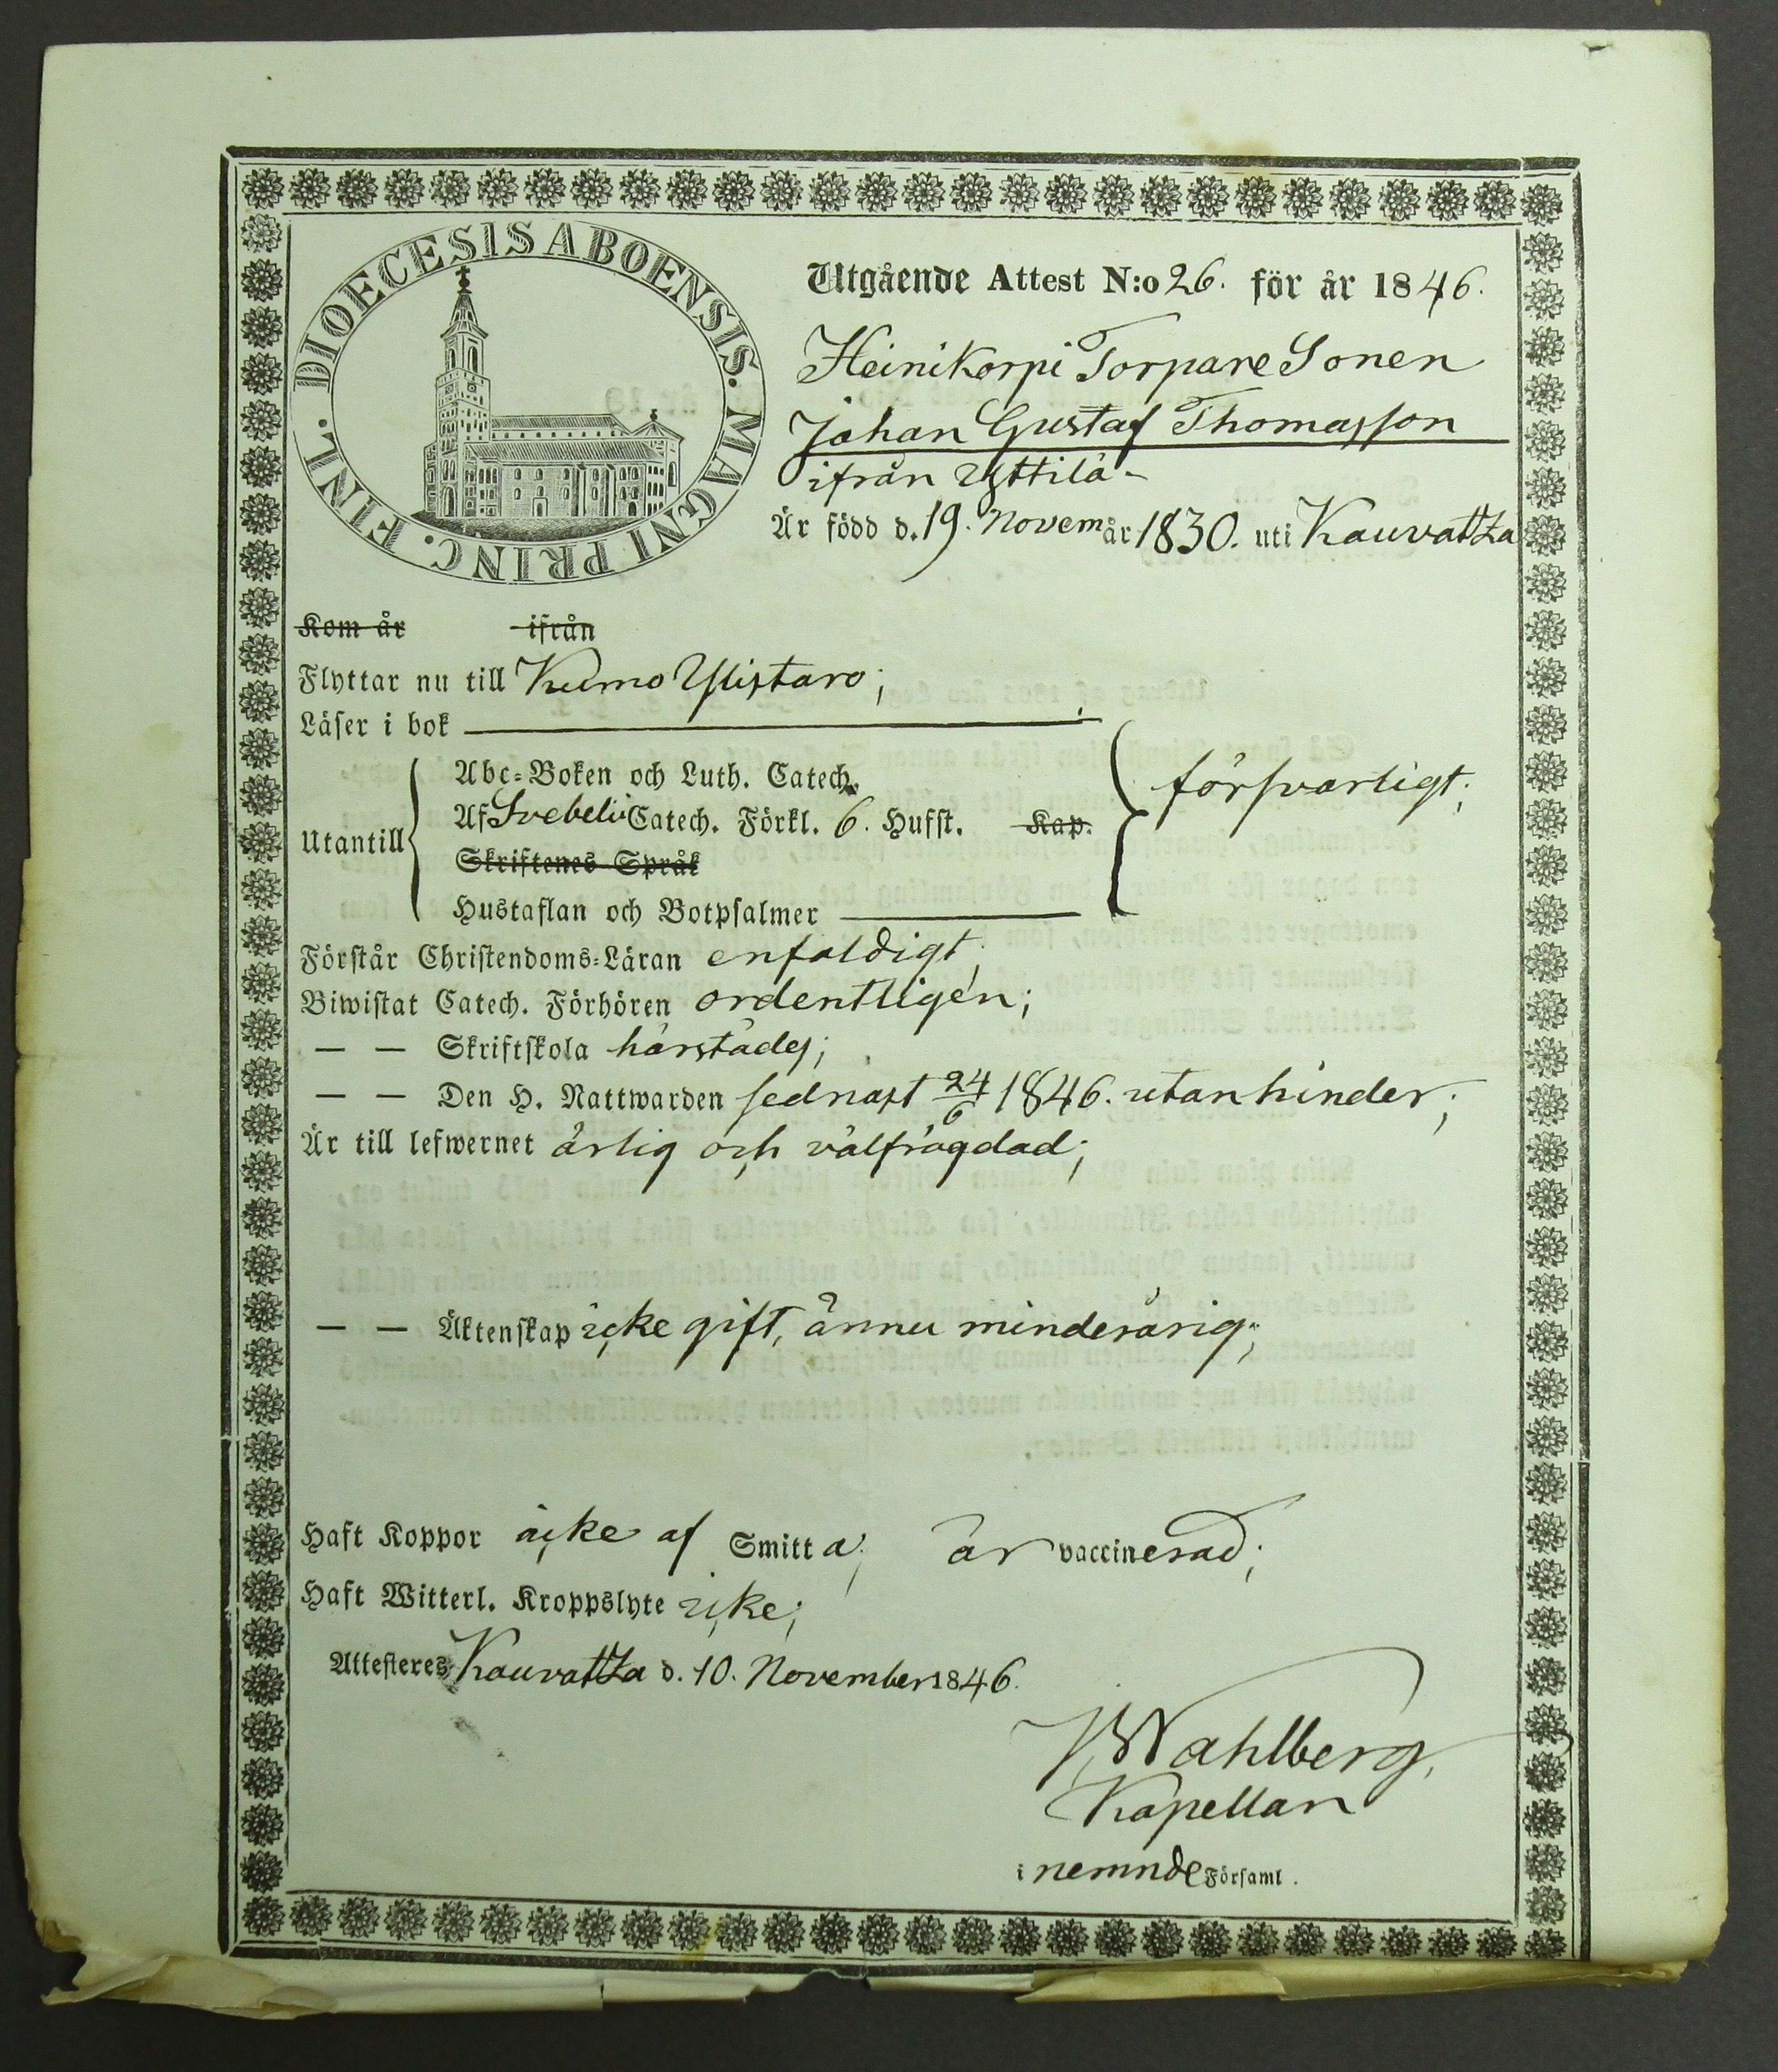 DIOECESIS ABOENSIS. MAGNI PRINC. FINL.
Utgående Attest N:o 26. för år 1846.
Heinikorpi Torpare Sonen
Johan Gustaf Thomasson
ifrån Yttilä
Är född d. 19. Novem år 1830. uti Kauvatza
Kom år ifrån
Flyttar nu till Kumo Ylistaro;
Läser i bok
Utantill
Abc-Boken och Luth. Catech.
Af Svebelii Catech. Förkl. 6. Hufst. Kap.
Skriftenes Språk
Hustaflan och Botpsalmer
försvarligt;
Förstår Christendoms-Läran enfaldigt;
Biwistat Catech. Förhören ordentligen;
— — Skriftskola härstädes;
— — Den H. Nattwarden sednast 24/6 1846. utan hinder;
Är till lefwernet ärlig och välfrägdad;
— — Äktenskap icke gift, ännu minderårig;
Haft Koppor icke af Smitta; är vaccinerad;
Haft Witterl. Kroppslyte icke;
Attesteres Kauvatza d. 10. November 1846.
J. Wahlberg,
Kapellan
i nemnde Församl.